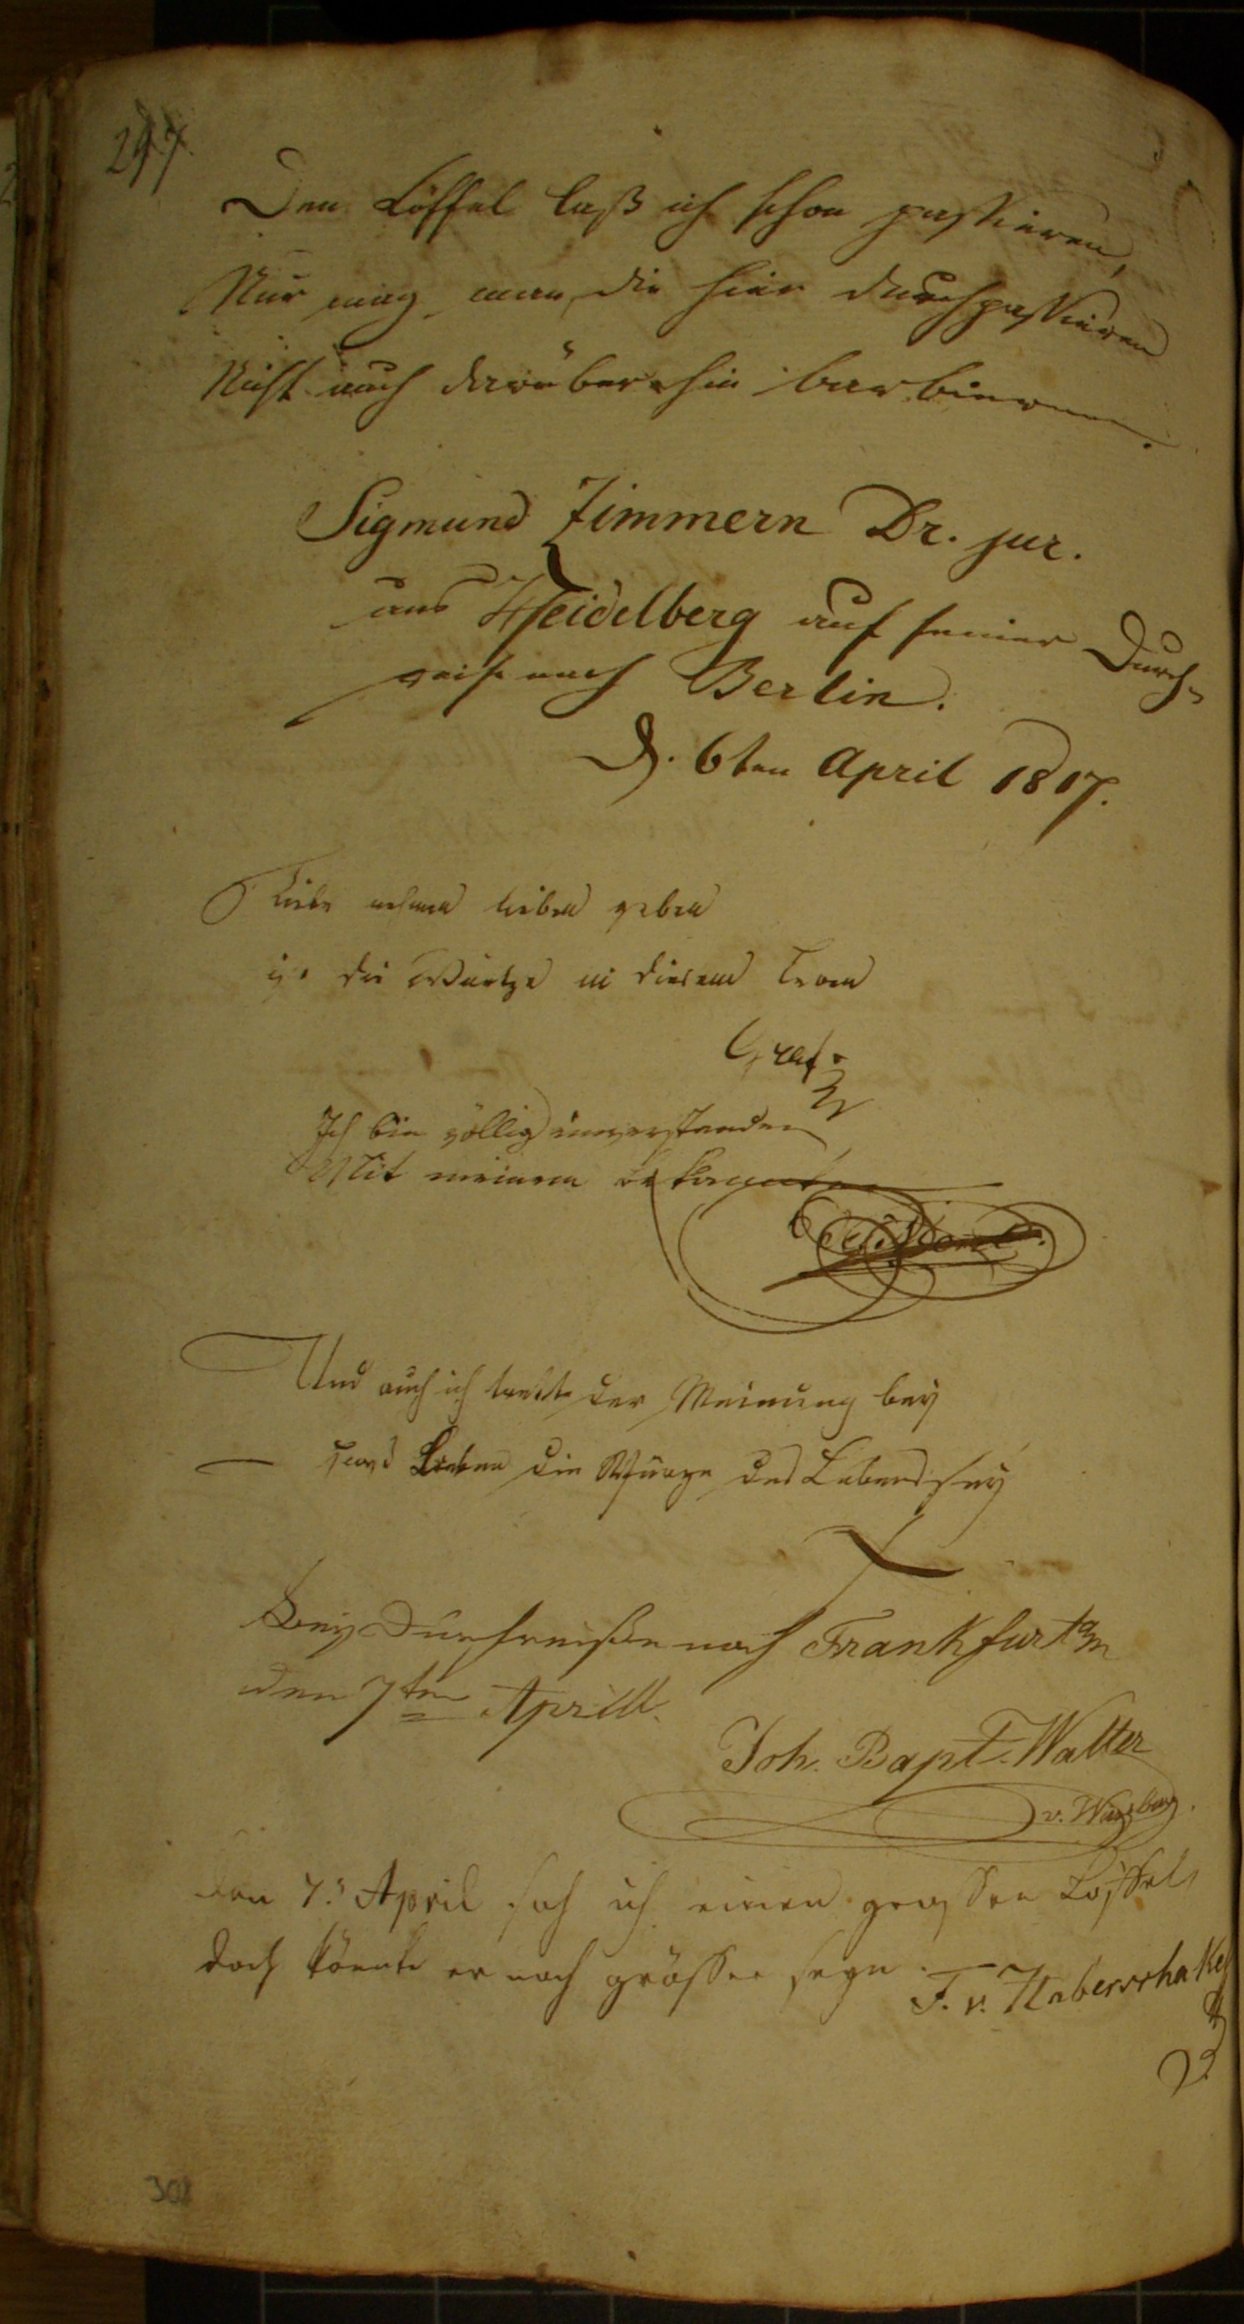 297.
Den Löffel laß ich schon passieren,
Nur mag man die hier durchpassieren
Nicht auch darüber hin barbieren.
Sigmund Zimmern Dr. jur.
aus Heidelberg auf seiner Durch-
reise nach Berlin.
D. 6ten April 1817.
Liebe nehmen lieben geben
die Würtze in diesem Leben
Ich bin völlig einverstanden
Mit meinem Bekannten
Und auch ich trette der Meinung bey
Lieben die Würze des Lebens sey
Bey Durchreise nach Frankfurt a/m
den 7ten Aprill.
Joh. Bapt. Walter
v. Würzburg.
den 7. April sah ich einen grossen Löffel
doch könnte er noch grösser seyn.
F. v.
308